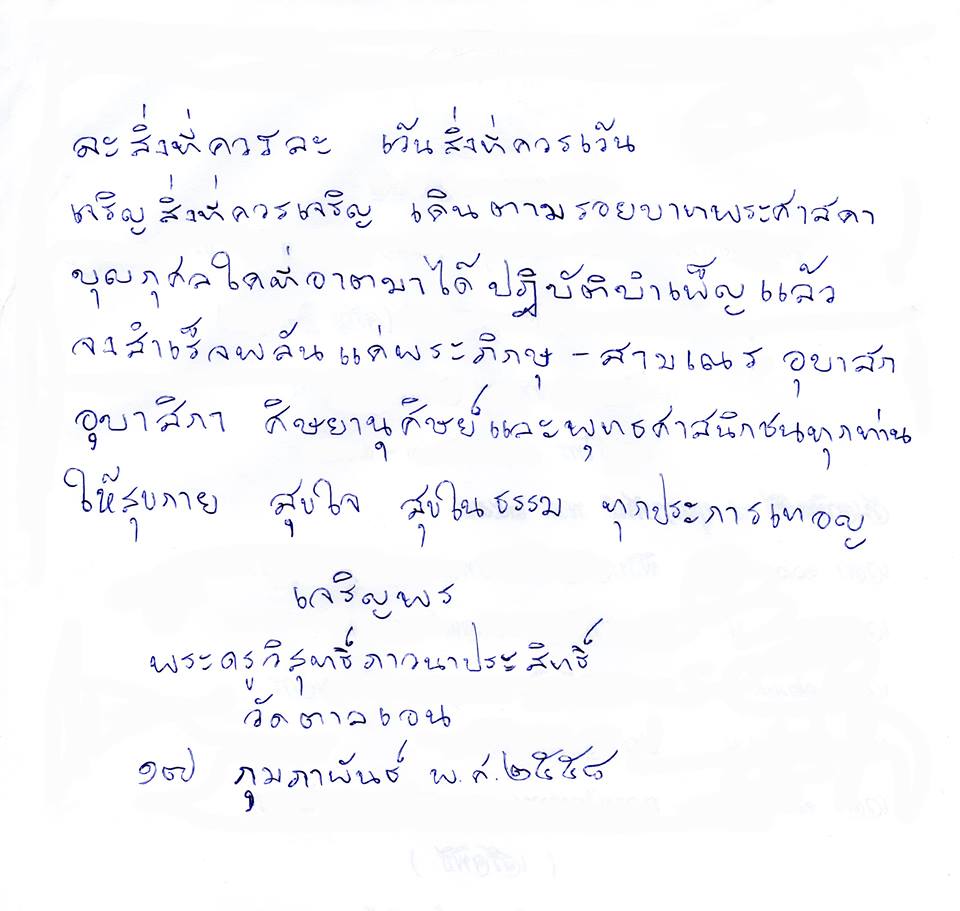 ละสิ่งที่ควรละ เว้นสิ่งที่ควรเว้น
เจริญสิ่งที่ควรเจริญ เดินตามรอยบาทพระศาสดา
บุญกุศลใดที่อาตมาได้ปฏิบัติบำเพ็ญแล้ว
จงสำเร็จพลันแด่พระภิกษุ - สามเณร อุบาสก
อุบาสิกา ศิษยานุศิษย์และพุทธศาสนิกชนทุกท่าน
ให้สุขกาย สุขใจ สุขในธรรม ทุกประการเทอญ
เจริญพร
พระครูวิสุทธิ์ภาวนาประสิทธิ์
วัดตาลเอน
๑๗ กุมภาพันธ์ พ.ศ.๒๕๕๘